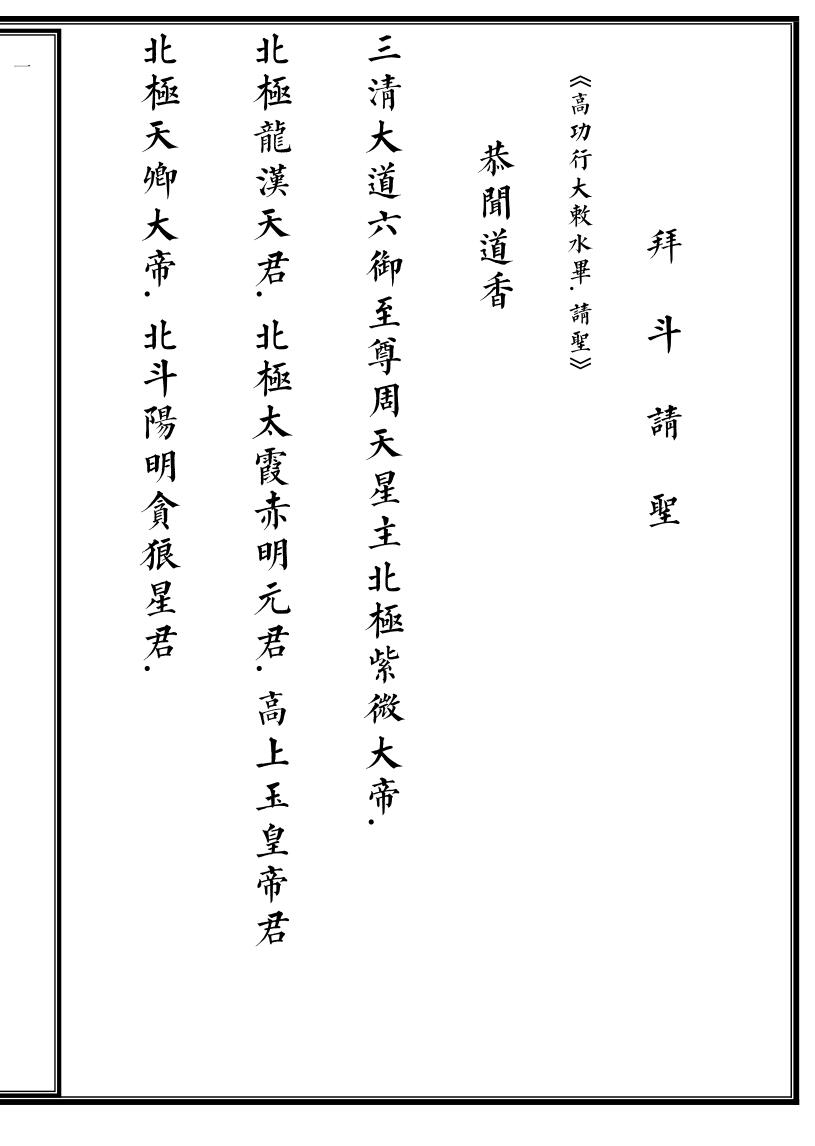 拜斗請聖
《高功行大敕水畢.請聖》
恭聞道香
三清大道六御至尊周天星主北極紫微大帝.
北極龍漢天君.北極太霞赤明元君.高上玉皇帝君
北極天卿大帝.北斗陽明貪狼星君.
一